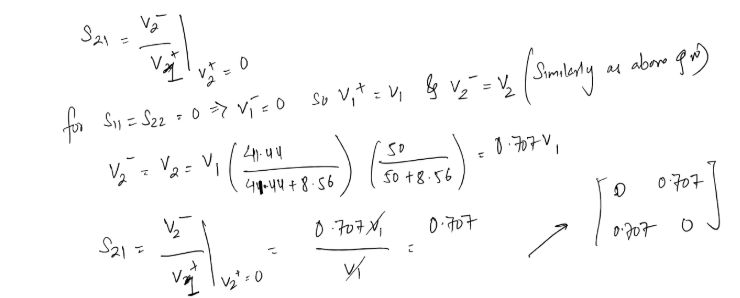 S₂₁ = V₂⁻ / V₁⁺ | V₂⁺ = 0
for S₁₁ = S₂₂ = 0 ⇒ V₁⁻ = 0 so V₁⁺ = V₁ & V₂⁻ = V₂ (Similarly as above qn)
V₂⁻ = V₂ = V₁ (41.44 / 41.44 + 8.56) (50 / 50 + 8.56) = 0.707 V₁
S₂₁ = V₂⁻ / V₁⁺ | V₂⁺ = 0 = 0.707 V₁ / V₁ = 0.707 → [0 0.707
0.707 0]